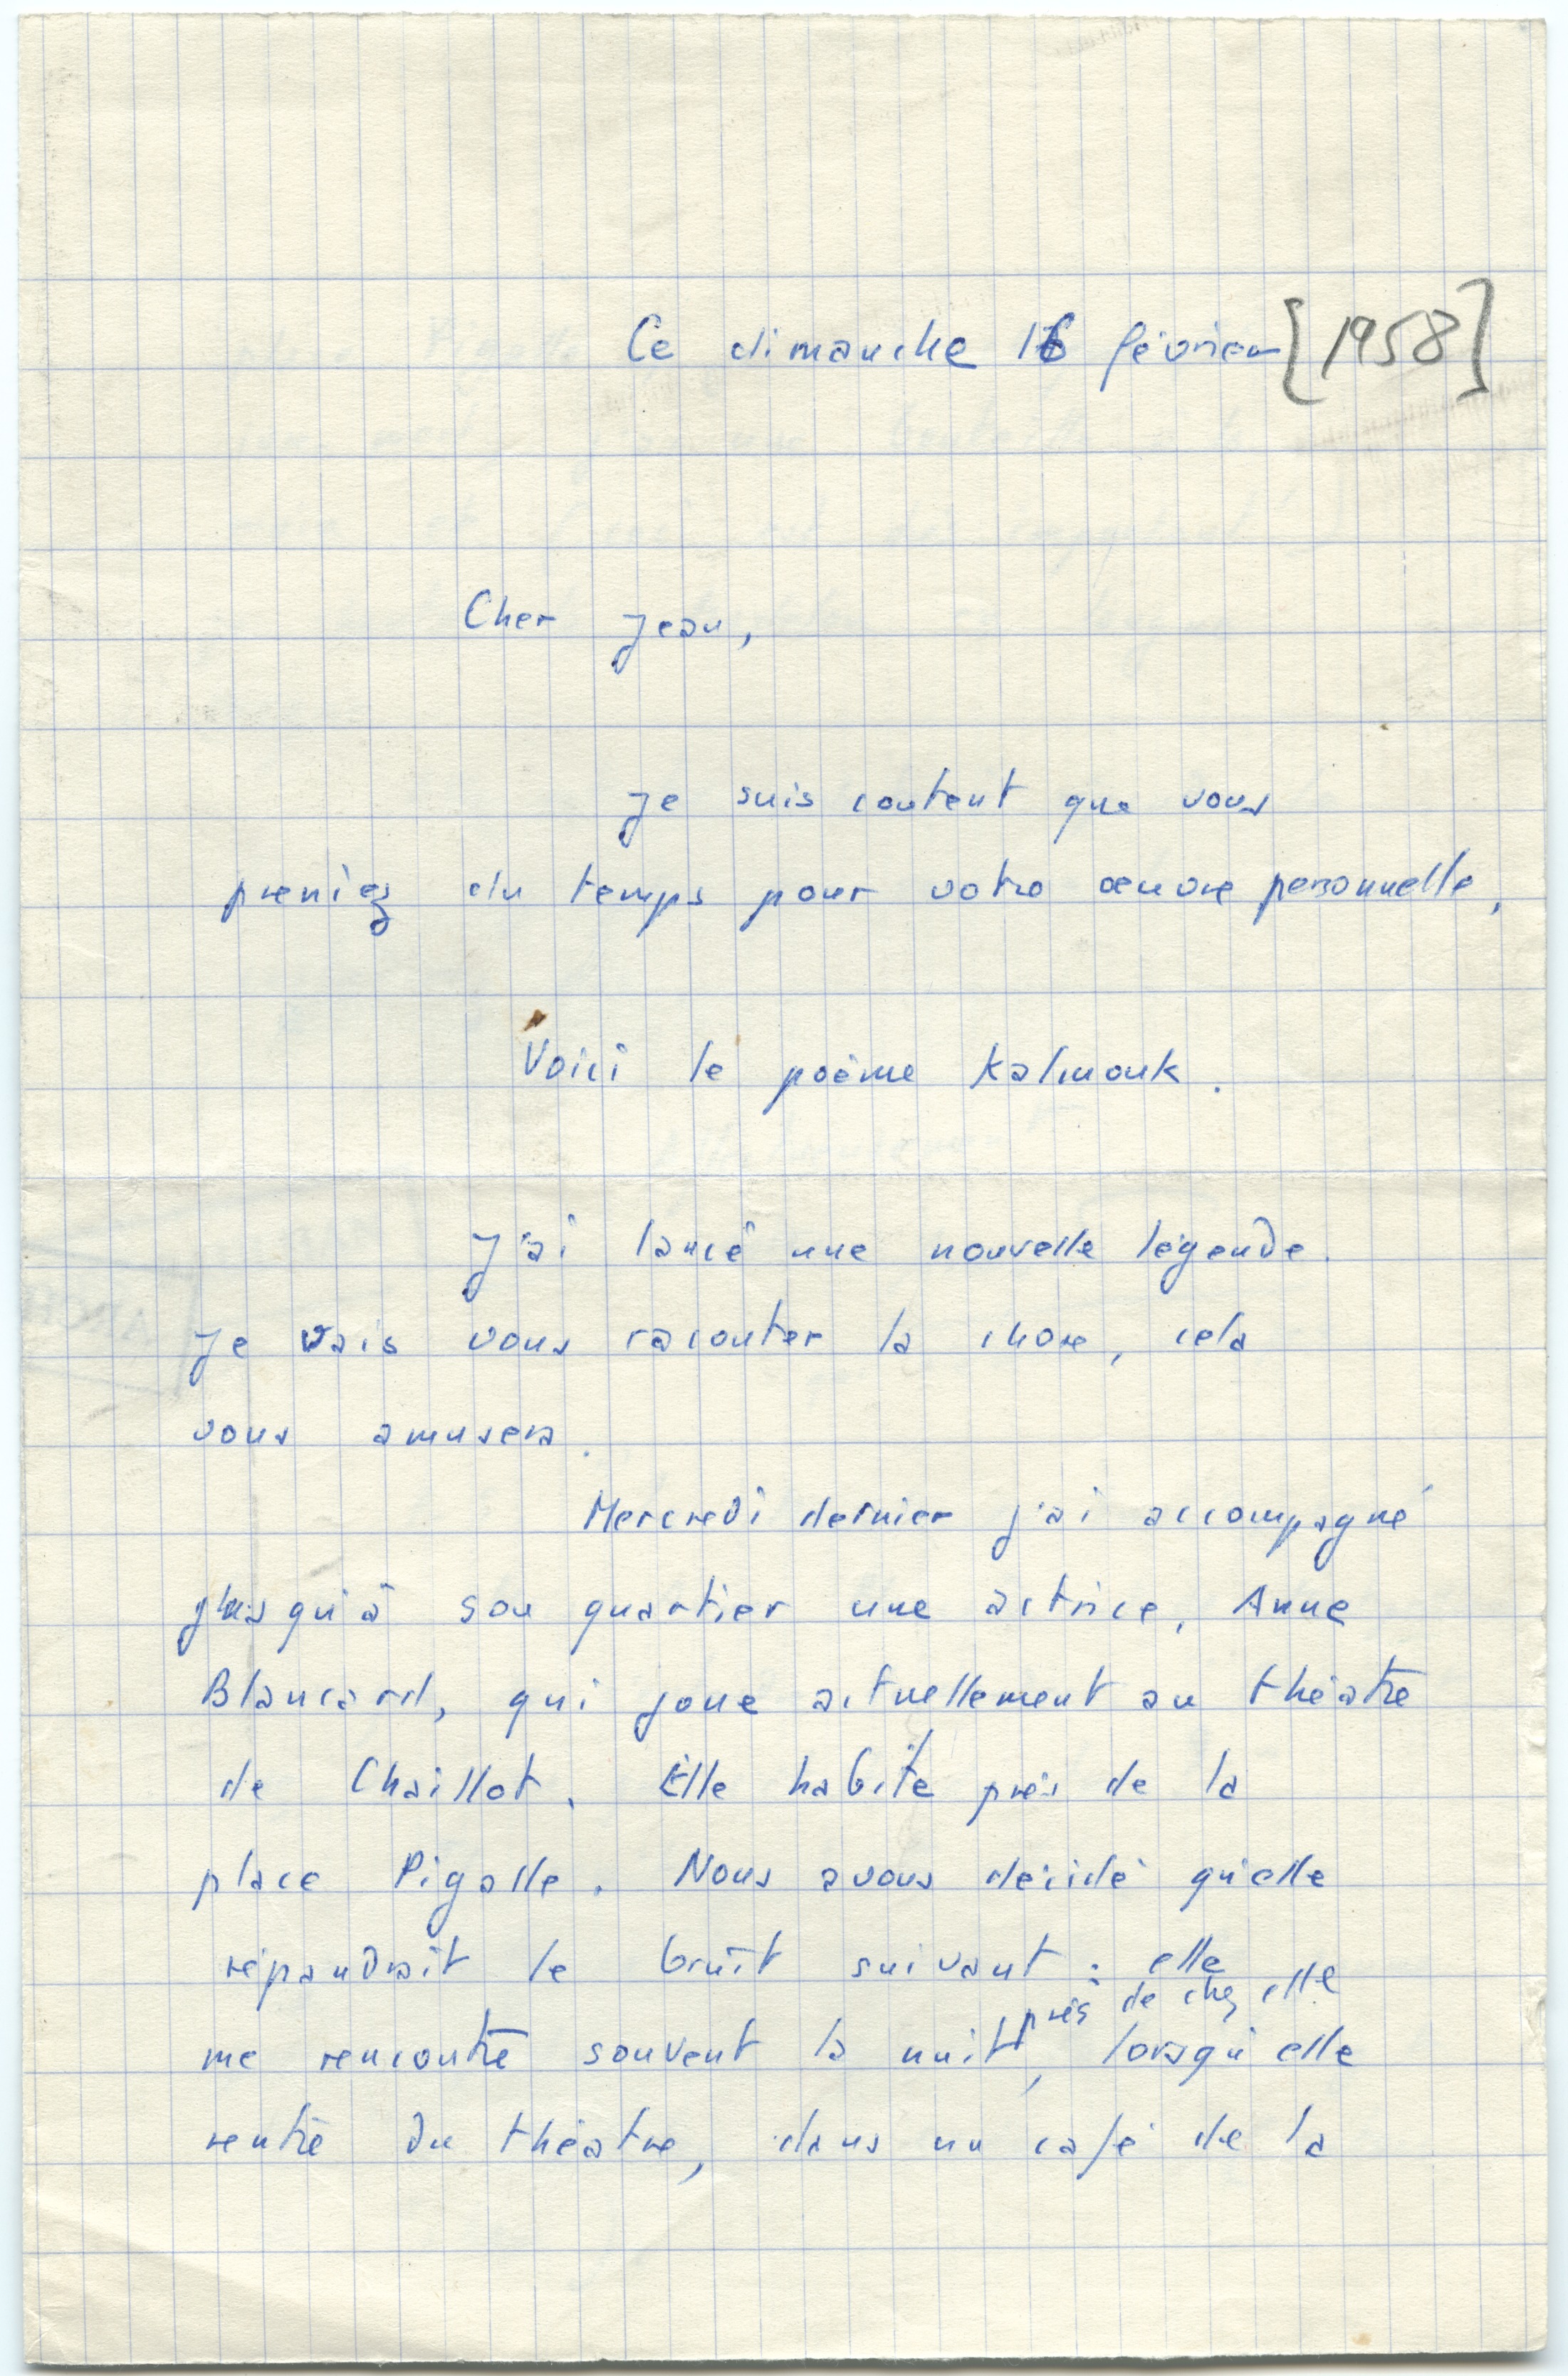 Ce dimanche 16 février [1958]
Cher Jean,
Je suis content que vous
preniez du temps pour votre œuvre personnelle,
Voici le poème Kalmouk.
J'ai lancé une nouvelle légende.
Je vais vous raconter la chose, cela
vous amusera.
Mercredi dernier j'ai accompagné
jusqu'à son quartier une actrice, Anne
Blancard, qui joue actuellement au théâtre
de Chaillot. Elle habite près de la
place Pigalle. Nous avons décidé qu'elle
répandrait le bruit suivant : elle
près de chez elle
me rencontre souvent la nuit, lorsqu'elle
rentre du théâtre, dans un café de la